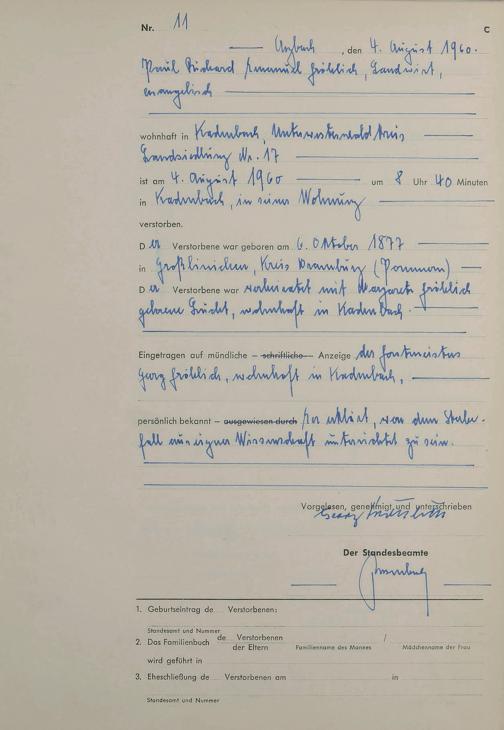 Nr. 11
C
Arzbach, den 4. August 1960.
Paul Richard Emanuel Fröhlich, Landwirt,
evangelisch
wohnhaft in Kadenbach, Unterwesterwaldkreis
Landsiedlung Nr. 17
ist am 4. August 1960 um 8 Uhr 40 Minuten
in Kadenbach, in seiner Wohnung
verstorben.
Der Verstorbene war geboren am 6. Oktober 1877
in Großlinichen, Kreis Dramburg (Pommern)
Der Verstorbene war verheiratet mit Margarete Fröhlich
geborene Lucht, wohnhaft in Kadenbach.
Eingetragen auf mündliche – schriftliche – Anzeige des Forstmeisters
Georg Fröhlich, wohnhaft in Kadenbach,
persönlich bekannt – ausgewiesen durch Er erklärt, von dem Sterbe-
fall aus eigner Wissenschaft unterrichtet zu sein.
Vorgelesen, genehmigt und unterschrieben
Georg Fröhlich
Der Standesbeamte
1. Geburtseintrag de Verstorbenen:
Standesamt und Nummer
2. Das Familienbuch de Verstorbenen /
der Eltern Familienname des Mannes Mädchenname der Frau
wird geführt in
3. Eheschließung de Verstorbenen am in
Standesamt und Nummer